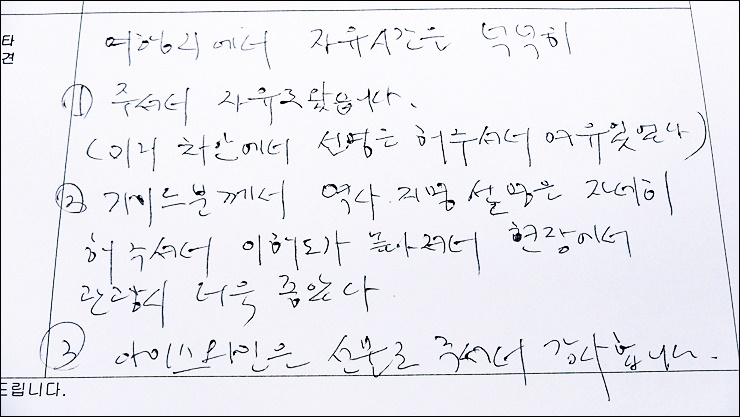 타
견
여행시에서 자유시간은 넉넉히
① 주셔서 자유로왔습니다.
(미리 차안에서 설명은 허주셔서 여유있었다)
② 가이드분께서 역사.지명 설명은 자세히
허주셔서 이허도가 높아져서 현장에서
관광시 더욱 좋았다
③ 아이스와인은 선물로 주셔서 감사합니다.
드립니다.